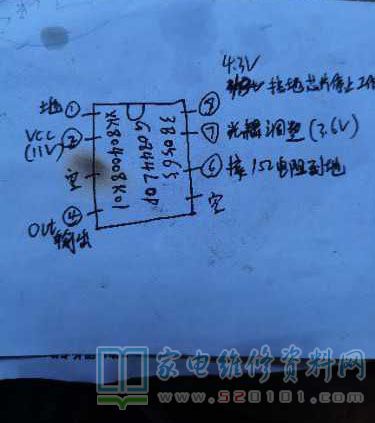 4.3V
地 ① ⑧ 接地芯片停止工作
VCC ② ⑦ 光耦调整 (3.6V)
(11V)
空 ⑥ 接15Ω电阻到地
空
OUt ④
输出
380G65
G08441OP
XK804008K01
家电维修资料网
www.520101.com